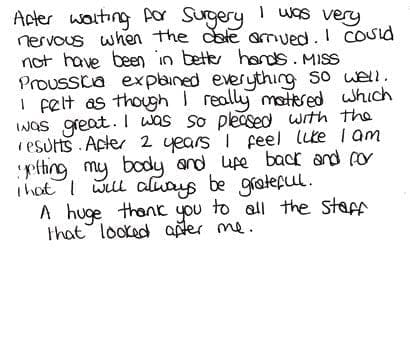 After waiting for surgery I was very
nervous when the date arrived. I could
not have been in better hands. Miss
Prousskia explained everything so well.
I felt as though I really mattered which
was great. I was so pleased with the
results. After 2 years I feel like I am
getting my body and life back and for
that I will always be grateful.
A huge thank you to all the staff
that looked after me.